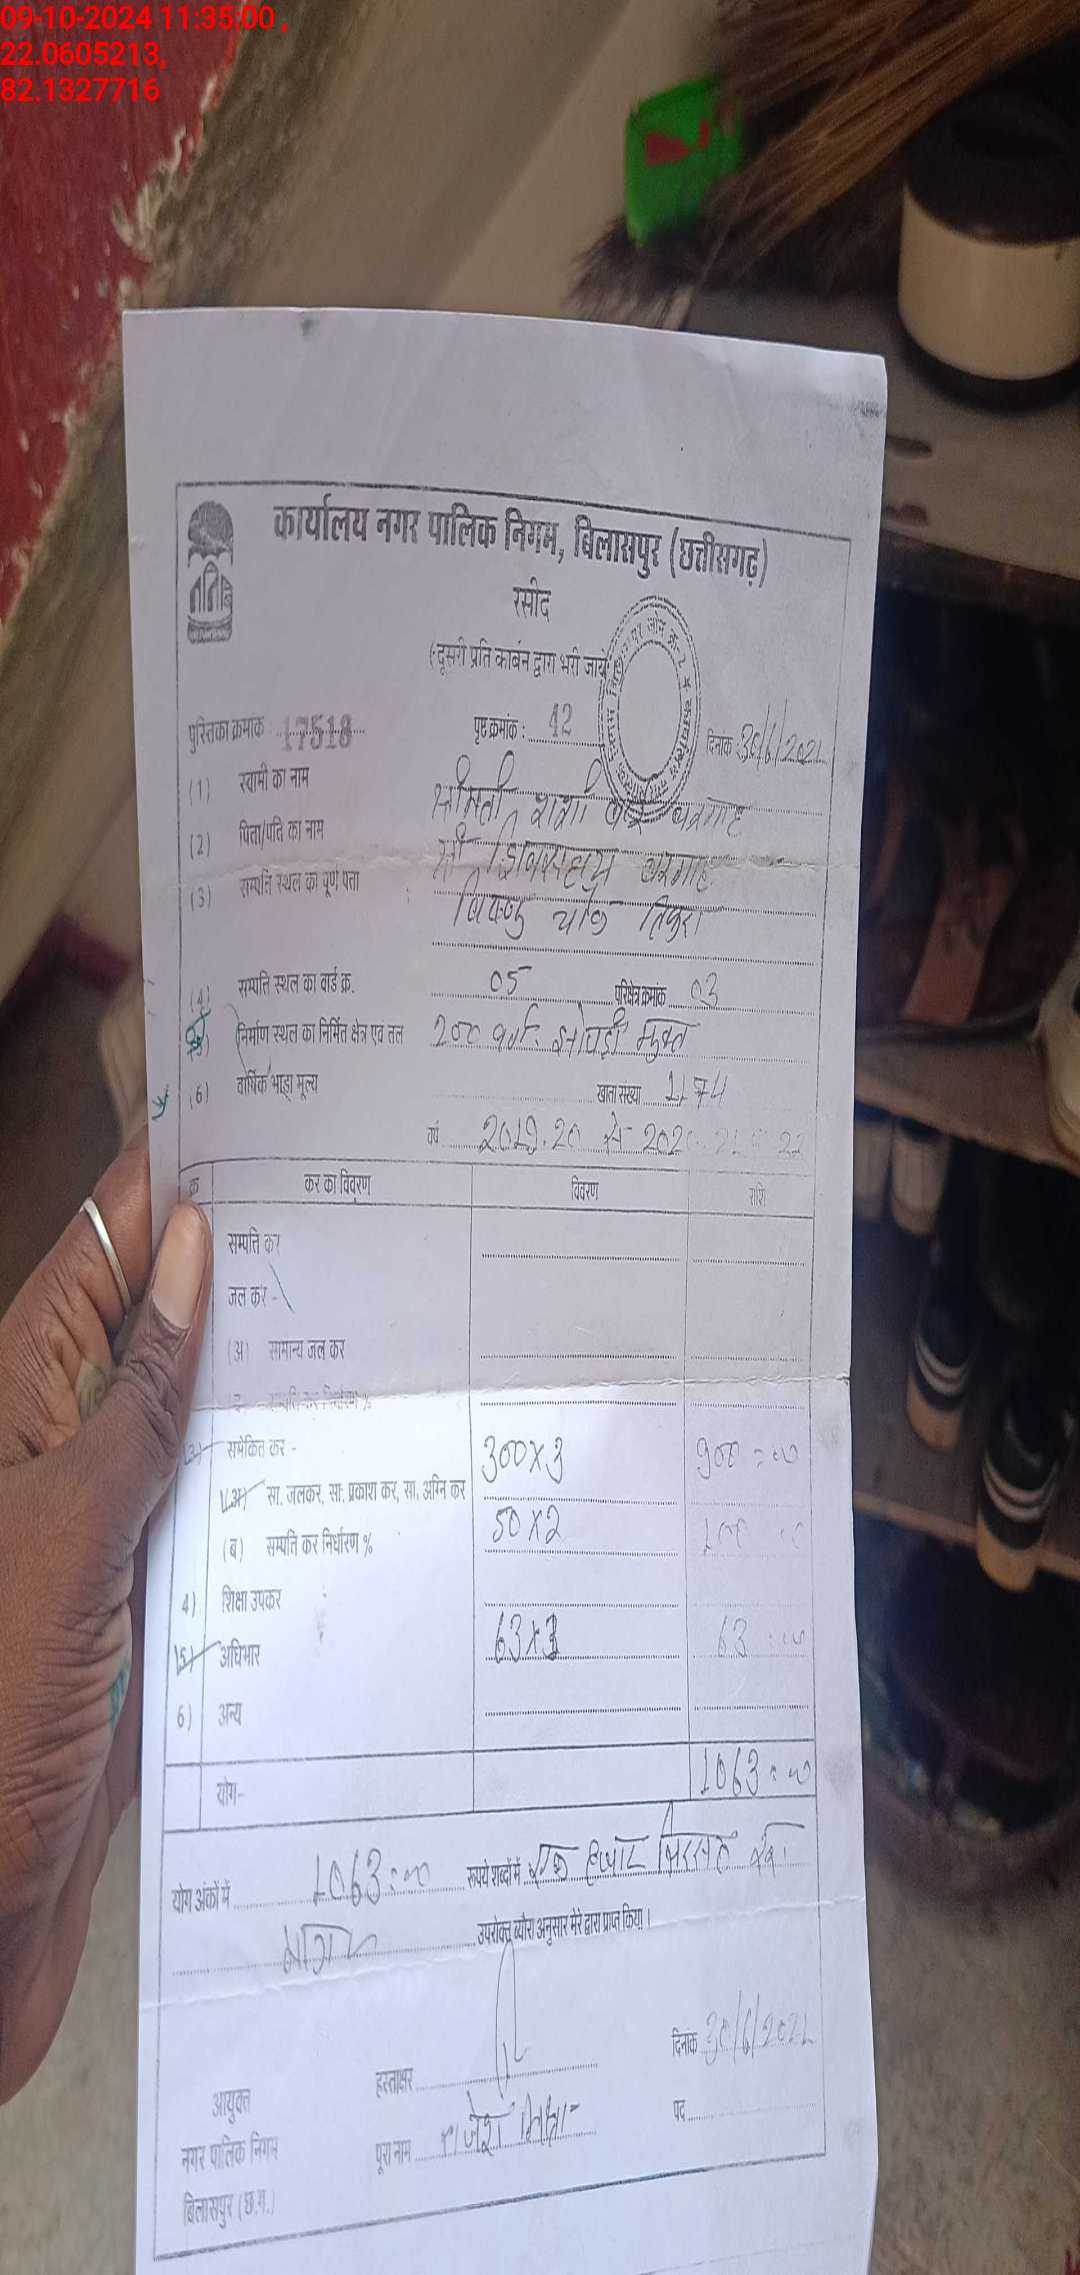 09-10-2024 11:35:00 ,
22.0605213,
82.1327716
कार्यालय नगर पालिक निगम, बिलासपुर (छत्तीसगढ़)
रसीद
(दूसरी प्रति कार्बन द्वारा भरी जाये
पुस्तिका क्रमांक 17518 पृष्ट क्रमांक : 42 दिनांक 30/6/2021
(1) स्वामी का नाम श्रीमती शशी
(2) पिता/पति का नाम श्री शिवसहाय
(3) सम्पत्ति स्थल का पूर्ण पता विष्णु चौक तिफरा
(4) सम्पत्ति स्थल का वार्ड क्र. 05 परिक्षेत्र क्रमांक 03
निर्माण स्थल का निर्मित क्षेत्र एवं तल 200 झोपड़ी मुक्त
(6) वार्षिक भाड़ा मूल्य खाता संख्या 1174
वर्ष 2019.20 से
क्र कर का विवरण विवरण राशि
सम्पत्ति कर
जल कर -
(अ) सामान्य जल कर
समेकित कर - 300x3 900=00
(अ) सा. जलकर, सा. प्रकाश कर, सा. अग्नि कर
(ब) सम्पति कर निर्धारण % 50x2 100
4) शिक्षा उपकर
5) अधिभार 63x3 63
6) अन्य
योग- 1063=00
योग अंकों में 1063=00 रूपये शब्दों में एक हजार तिरसठ रू.
मात्र उपरोक्त ब्यौरा अनुसार मेरे द्वारा प्राप्त किया।
दिनांक 30/6/2021
आयुक्त हस्ताक्षर
नगर पालिक निगम पूरा नाम राजेश मिश्रा पद
बिलासपुर (छ.ग.)